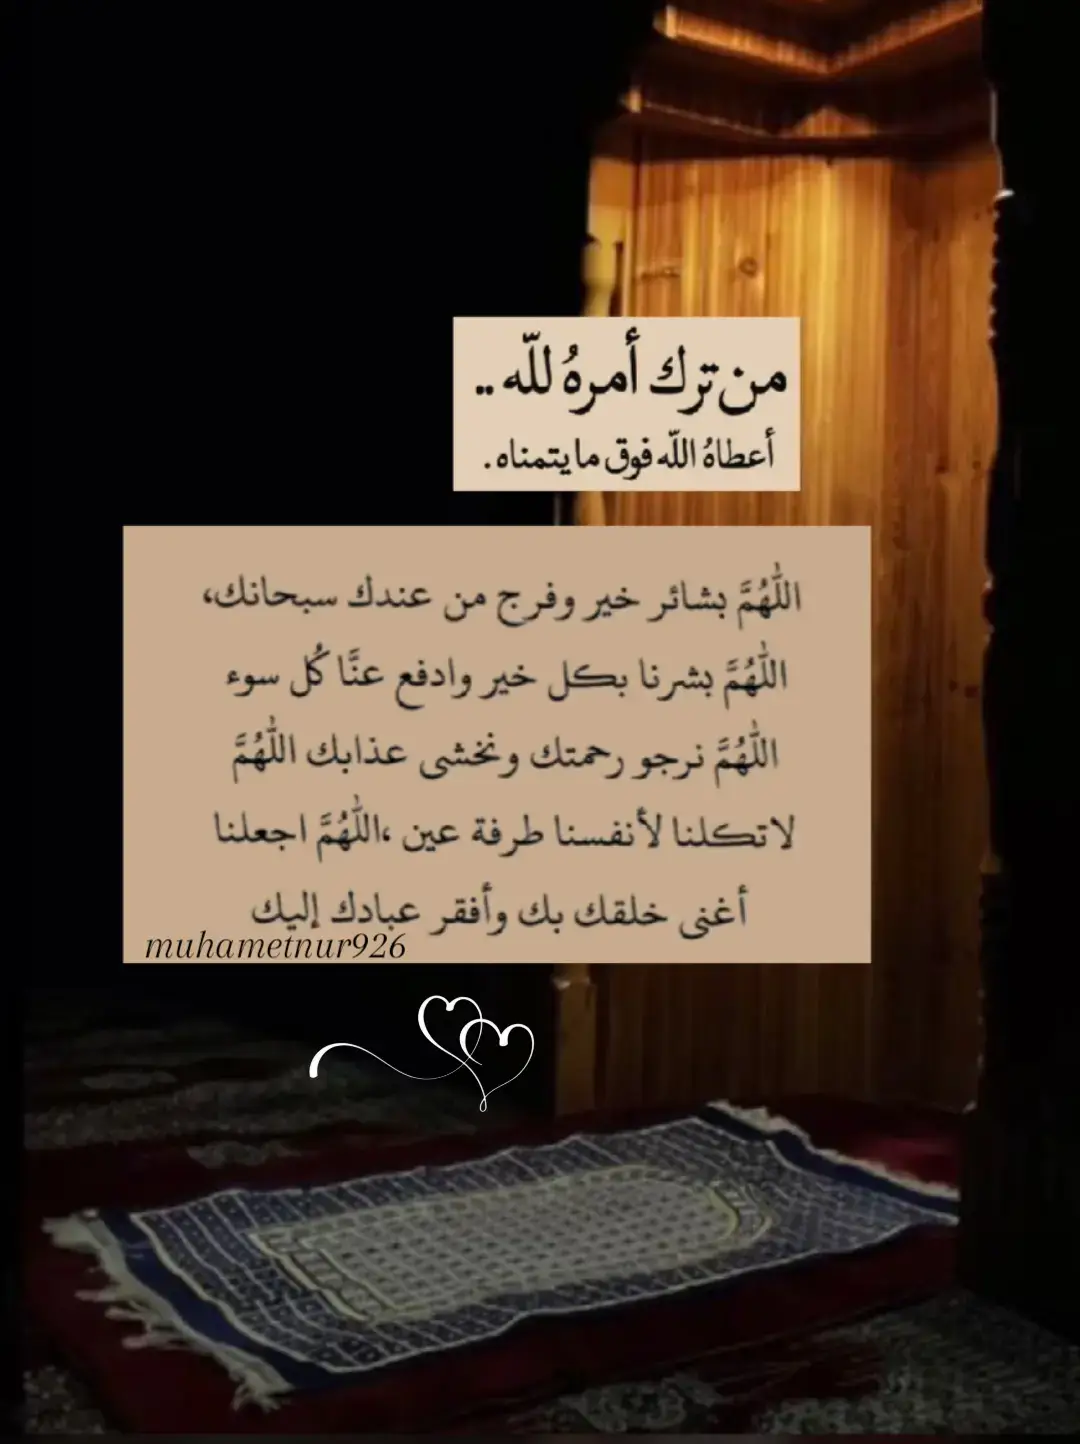 من ترك أمرهُ للّه ..
أعطاهُ اللّه فوق ما يتمناه .
اللّٰهُمَّ بشائر خير وفرج من عندك سبحانك،
اللّٰهُمَّ بشرنا بكل خير وادفع عنَّا كُل سوء
اللّٰهُمَّ نرجو رحمتك ونخشى عذابك اللّٰهُمَّ
لاتكلنا لأنفسنا طرفة عين ،اللّٰهُمَّ اجعلنا
أغنى خلقك بك وأفقر عبادك إليك
muhametnur926